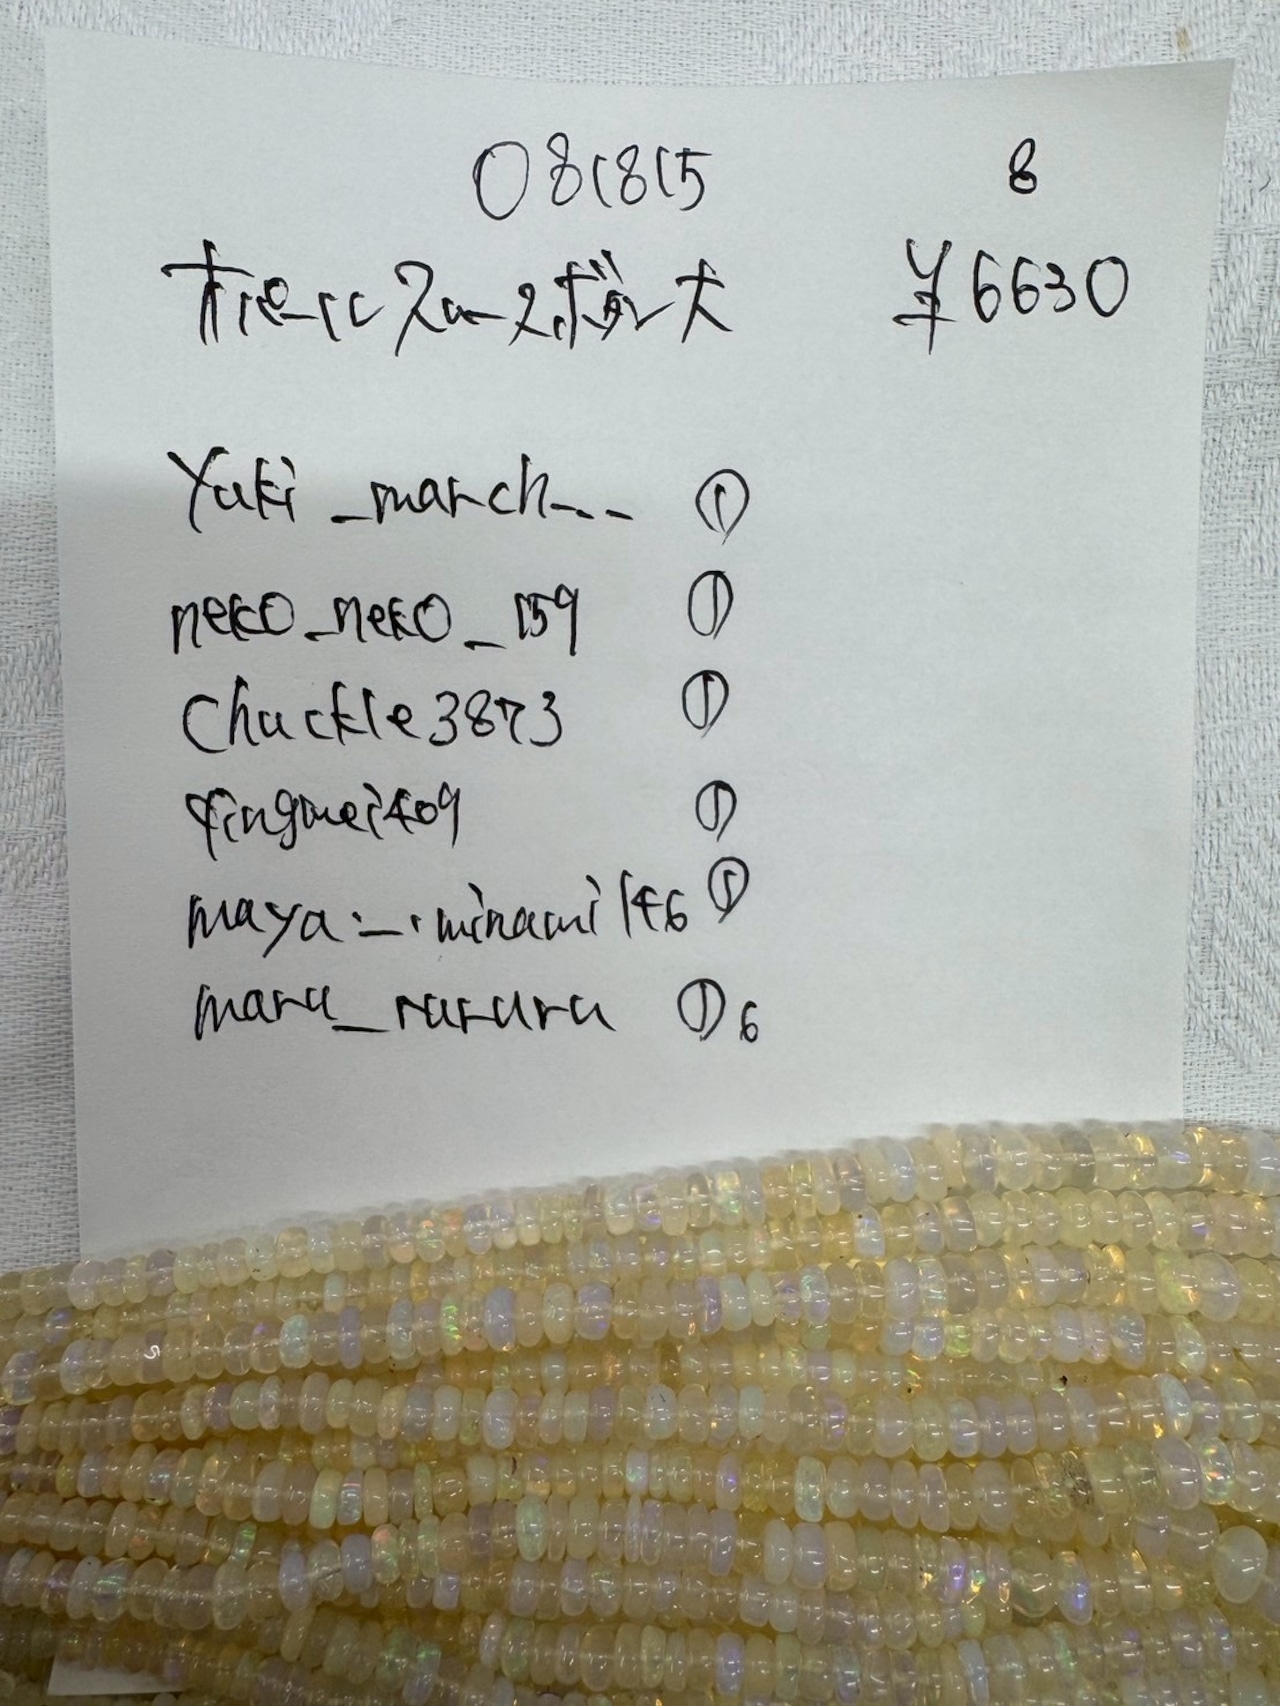 081815 8
オパール スムースボタン 大 ¥6630
Yuki_march... ①
neko_neko_159 ①
Chuckle3873 ①
qingmei409 ①
maya._.minami146 ①
maru_rururu ① 6